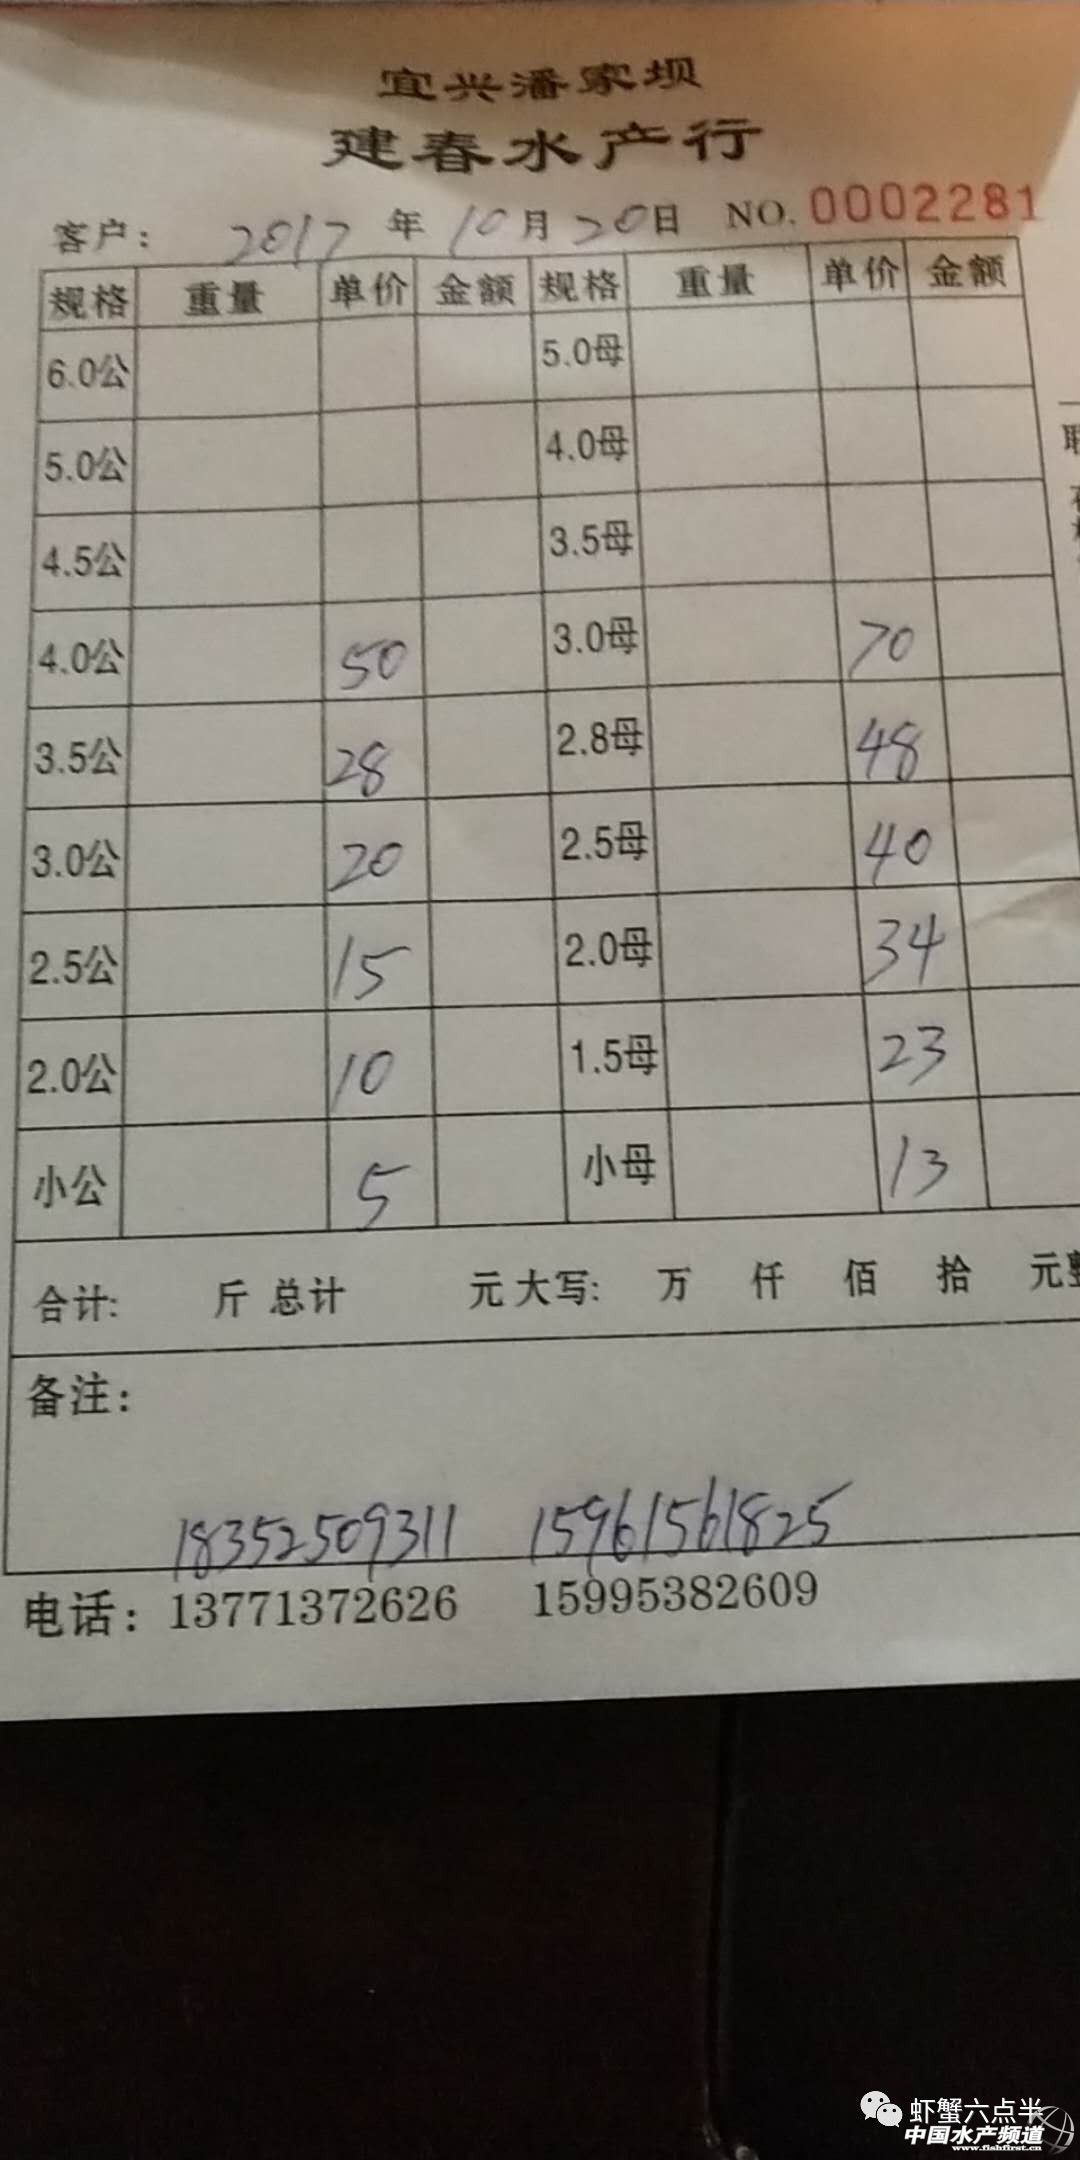 宜兴潘家坝
建春水产行
客户： 2017 年 10 月 20 日 NO. 0002281
规格 重量 单价 金额 规格 重量 单价 金额
6.0公 5.0母
5.0公 4.0母
4.5公 3.5母
4.0公 50 3.0母 70
3.5公 28 2.8母 48
3.0公 20 2.5母 40
2.5公 15 2.0母 34
2.0公 10 1.5母 23
小公 5 小母 13
合计: 斤 总计 元 大写: 万 仟 佰 拾 元整
备注：
18352509311 15961561825
电话：13771372626 15995382609
虾蟹六点半
中国水产频道
www.fishfirst.cn